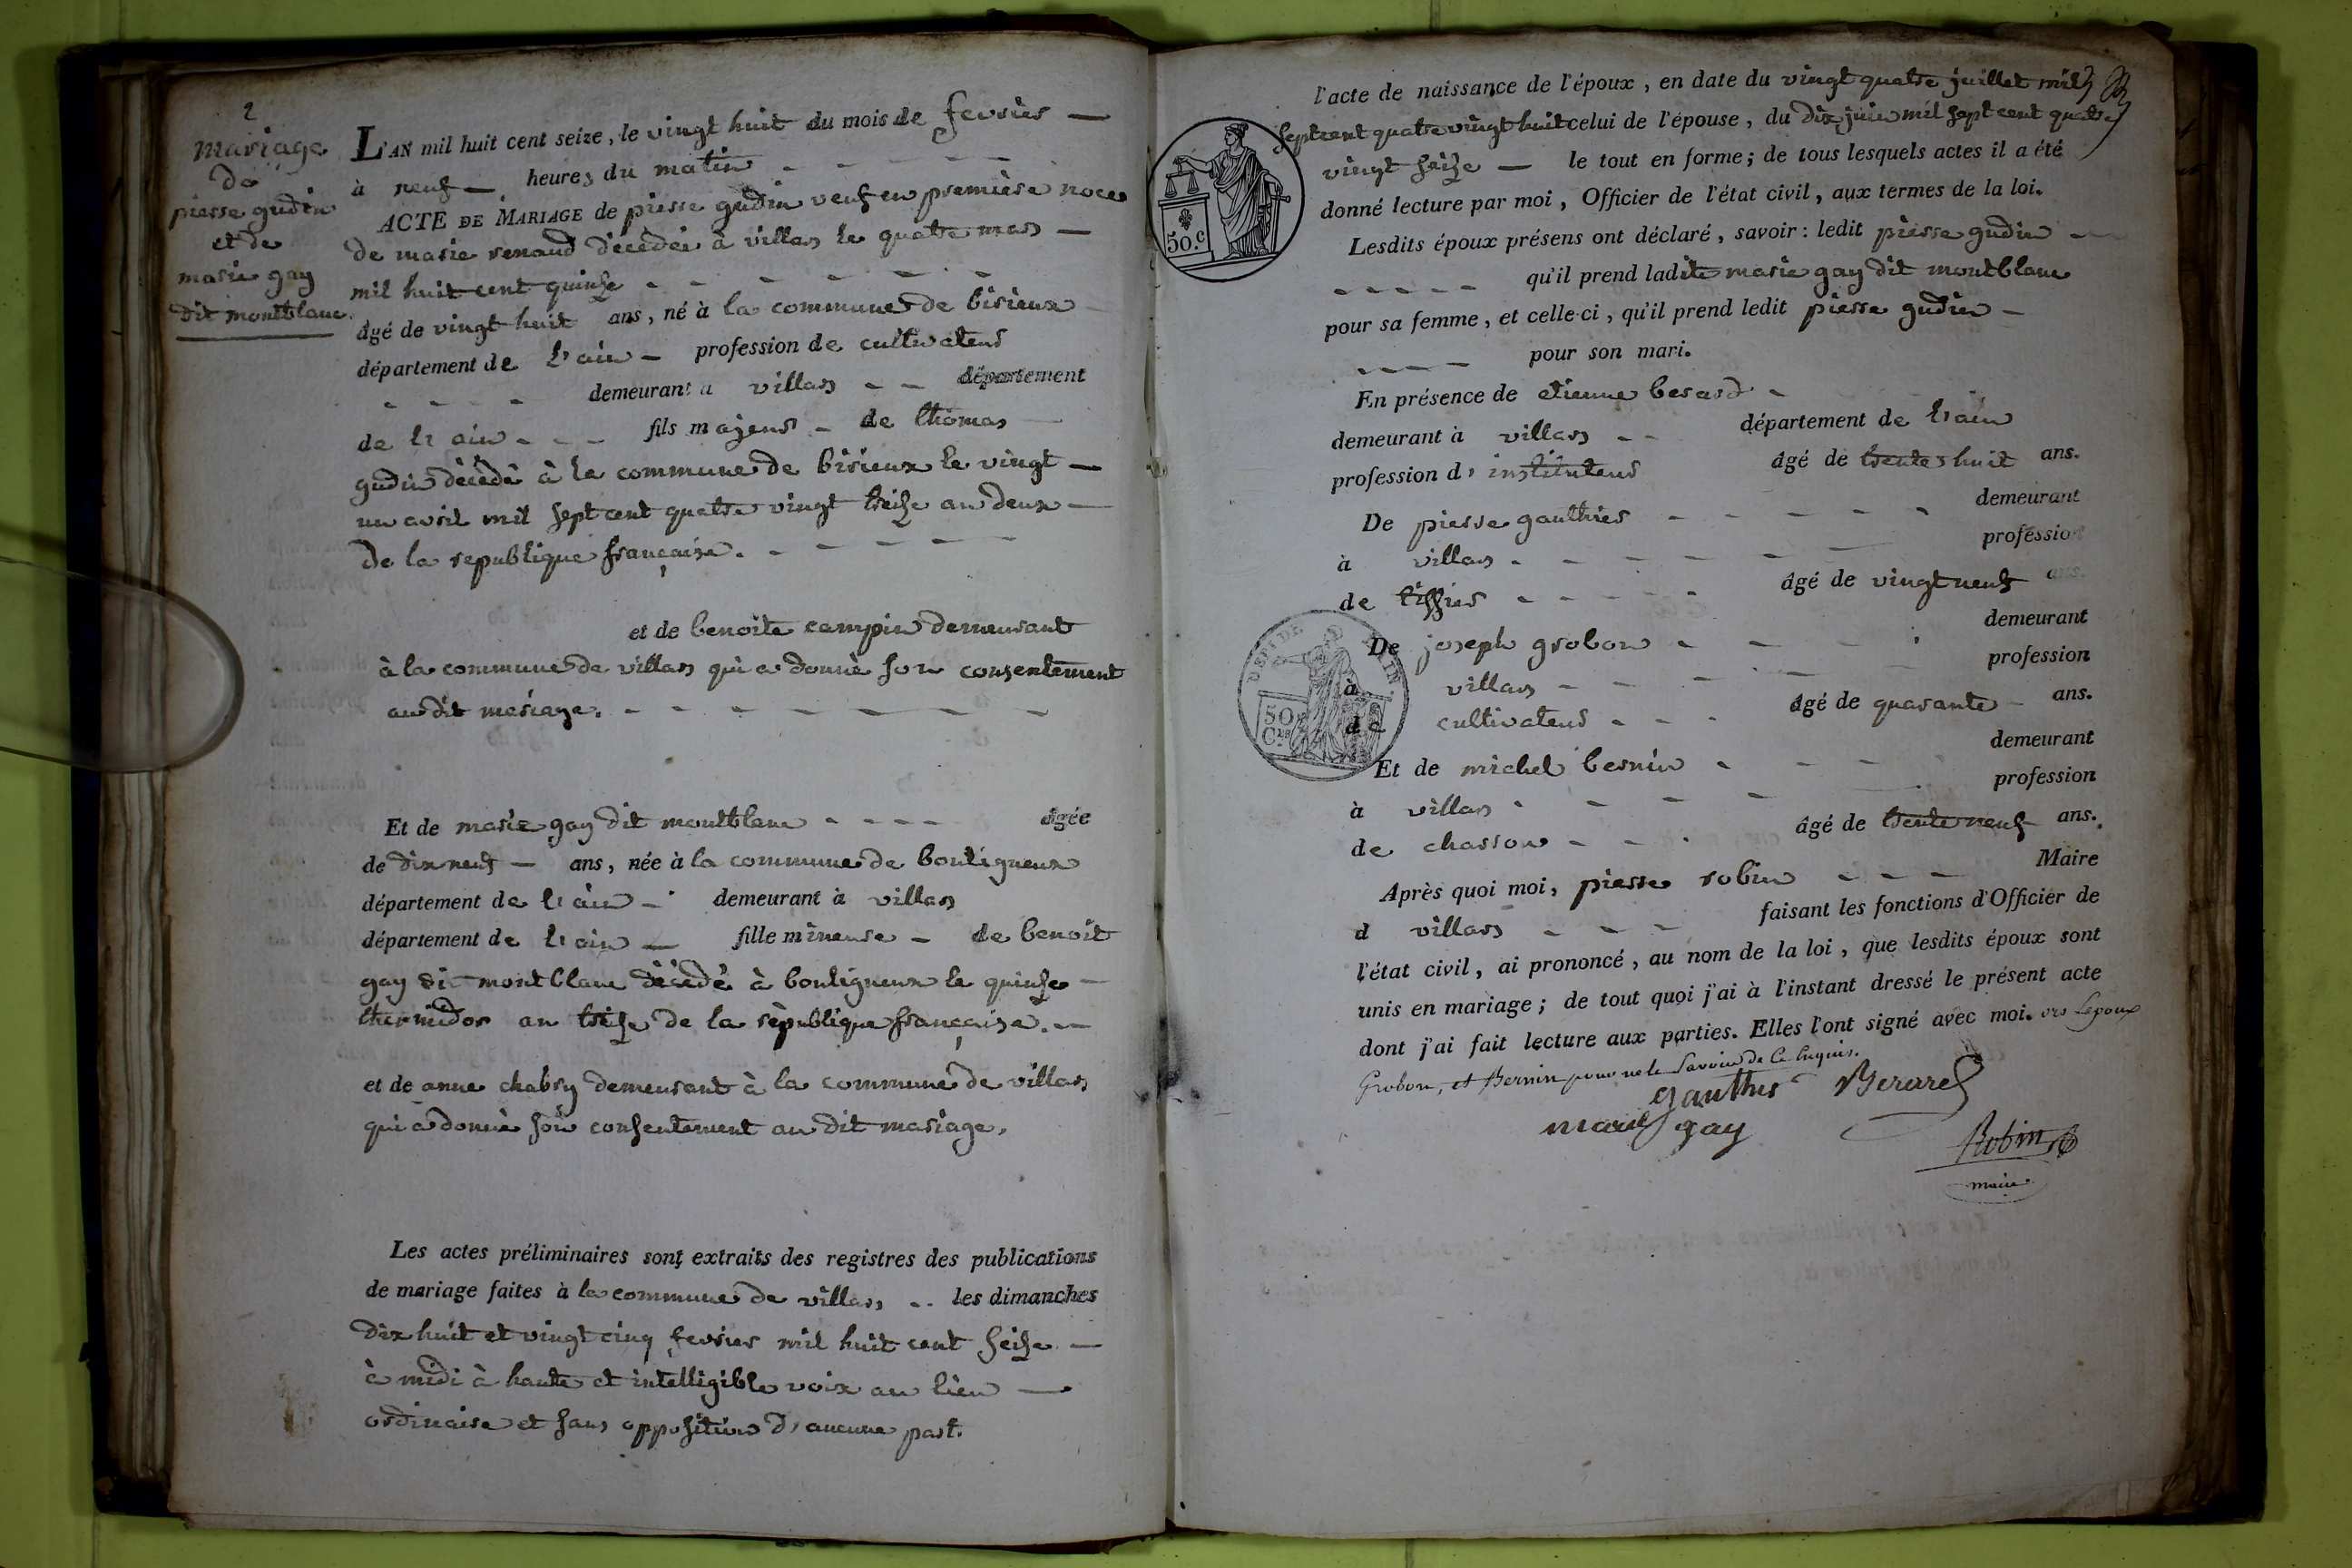 2
mariage
de
pierre gudin
et de
marie gay
dit montblanc
L'AN mil huit cent seize, le vingt huit du mois de fevrier
à neuf heures du matin
ACTE DE MARIAGE de pierre gudin veuf en première noce
de marie renaud décédée à villars le quatre mars
mil huit cent quinze
âgé de vingt huit ans, né à la commune de birieux
département de l'ain profession de cultivateur
demeurant à villars département
de l'ain fils majeur de thomas
gudin décédé à la commune de birieux le vingt
un avril mil sept cent quatre vingt treize an deux
de la republique française.
et de benoite campin demeurant
à la commune de villars qui a donné son consentement
au dit mariage.
Et de marie gay dit montblanc âgée
de dix neuf ans, née à la commune de bouligneux
département de l'ain demeurant à villars
département de l'ain fille mineure de benoit
gay dit montblanc décédé à bouligneux le quinze
thermidor an treize de la république française.
et de anne chabry demeurant à la commune de villars
qui a donné son consentement au dit mariage.
Les actes préliminaires sont extraits des registres des publications
de mariage faites à la commune de villars les dimanches
dix huit et vingt cinq fevrier mil huit cent seize
à midi à haute et intelligible voix au lieu
ordinaire et sans opposition d'aucune part.
l'acte de naissance de l'époux, en date du vingt quatre juillet mil
sept cent quatre vingt huit celui de l'épouse, du dix juin mil sept cent quatre
vingt seize le tout en forme; de tous lesquels actes il a été
donné lecture par moi, Officier de l'état civil, aux termes de la loi.
Lesdits époux présens ont déclaré, savoir: ledit pierre gudin
qu'il prend ladite marie gay dit montblanc
pour sa femme, et celle-ci, qu'il prend ledit pierre gudin
pour son mari.
En présence de etienne berard
demeurant à villars département de l'ain
profession d'instituteur âgé de trente huit ans.
De pierre gauthier demeurant
à villars profession
de tissier âgé de vingt neuf ans.
De joseph grobon demeurant
à villars profession
de cultivateur âgé de quarante ans.
Et de michel bernin demeurant
à villars profession
de charron âgé de trente neuf ans.
Après quoi moi, pierre robin Maire
d villars faisant les fonctions d'Officier de
l'état civil, ai prononcé, au nom de la loi, que lesdits époux sont
unis en mariage; de tout quoi j'ai à l'instant dressé le présent acte
dont j'ai fait lecture aux parties. Elles l'ont signé avec moi. Lepoux
Grobon, et Bernin pour ne le Savoir de Ce Enquis.
gauthier Berard
marie gay
Robin
maire
50.c
50
Ces